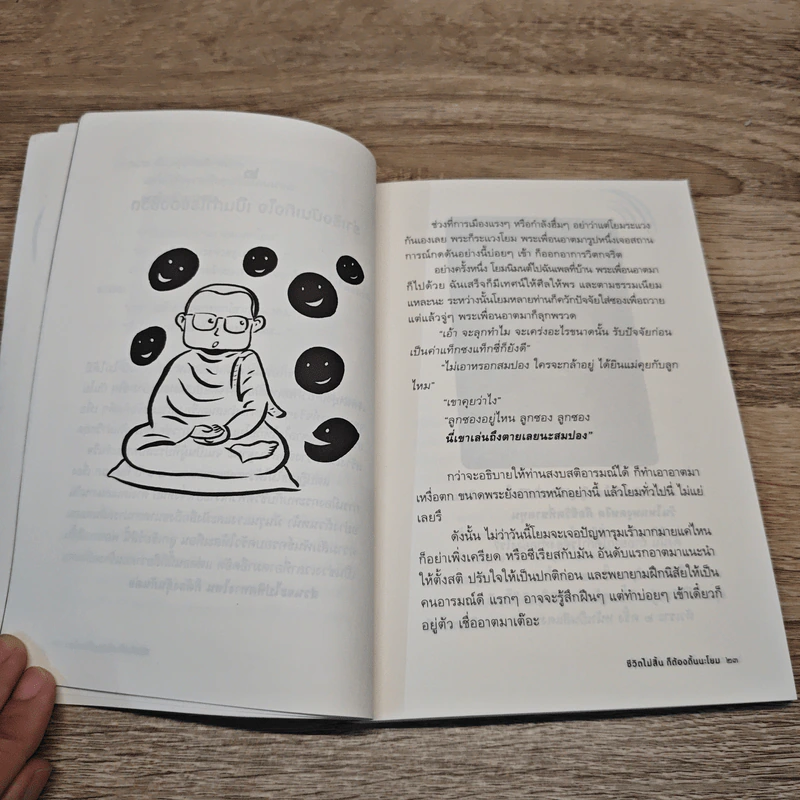 ช่วงที่การเมืองแรงๆ หรือกำลังฮึ่มๆ อย่าว่าแต่โยมระแวง
กันเองเลย พระก็ระแวงโยม พระเพื่อนอาตมารูปหนึ่งเจอสถาน
การณ์กดดันอย่างนี้บ่อยๆ เข้า ก็ออกอาการวิตกจริต
อย่างครั้งหนึ่ง โยมนิมนต์ไปฉันเพลที่บ้าน พระเพื่อนอาตมา
ก็ไปด้วย ฉันเสร็จก็มีเทศน์ให้ศีลให้พร และตามธรรมเนียม
แหละนะ ระหว่างนั้นโยมหลายท่านก็ควักปัจจัยใส่ซองเพื่อถวาย
แต่แล้วจู่ๆ พระเพื่อนอาตมาก็ลุกพรวด
“เอ้า จะลุกทำไม จะเคร่งอะไรขนาดนั้น รับปัจจัยก่อน
เป็นค่าแท็กซงแท็กซี่ก็ยังดี”
“ไม่เอาหรอกสมปอง ใครจะกล้าอยู่ ได้ยินแม่คุยกับลูก
ไหม”
“เขาคุยว่าไง”
“ลูกซองอยู่ไหน ลูกซอง ลูกซอง
นี่เขาเล่นถึงตายเลยนะสมปอง”
กว่าจะอธิบายให้ท่านสงบสติอารมณ์ได้ ก็ทำเอาอาตมา
เหงื่อตก ขนาดพระยังอาการหนักอย่างนี้ แล้วโยมทั่วไปนี่ ไม่แย่
เลยรึ
ดังนั้น ไม่ว่าวันนี้โยมจะเจอปัญหารุมเร้ามากมายแค่ไหน
ก็อย่าเพิ่งเครียด หรือซีเรียสกับมัน อันดับแรกอาตมาแนะนำ
ให้ตั้งสติ ปรับใจให้เป็นปกติก่อน และพยายามฝึกนิสัยให้เป็น
คนอารมณ์ดี แรกๆ อาจจะรู้สึกฝืนๆ แต่ทำบ่อยๆ เข้าเดี๋ยวก็
อยู่ตัว เชื่ออาตมาเต๊อะ
ชีวิตไม่สิ้น ก็ต้องดิ้นนะโยม ๒๓